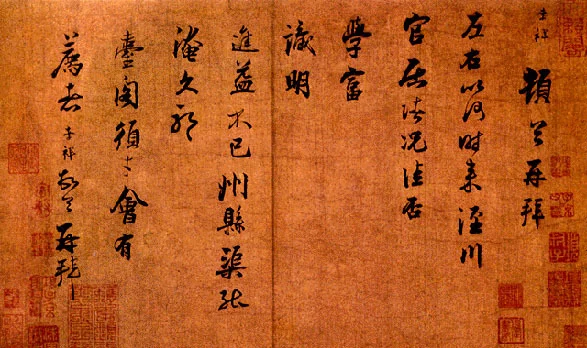 頓首再拜
左右以何時來涇川
官居清況佳否
學富
識明
進益不已州縣渠能
淹久耶
臺閣須才會有
薦者 頓首再拜